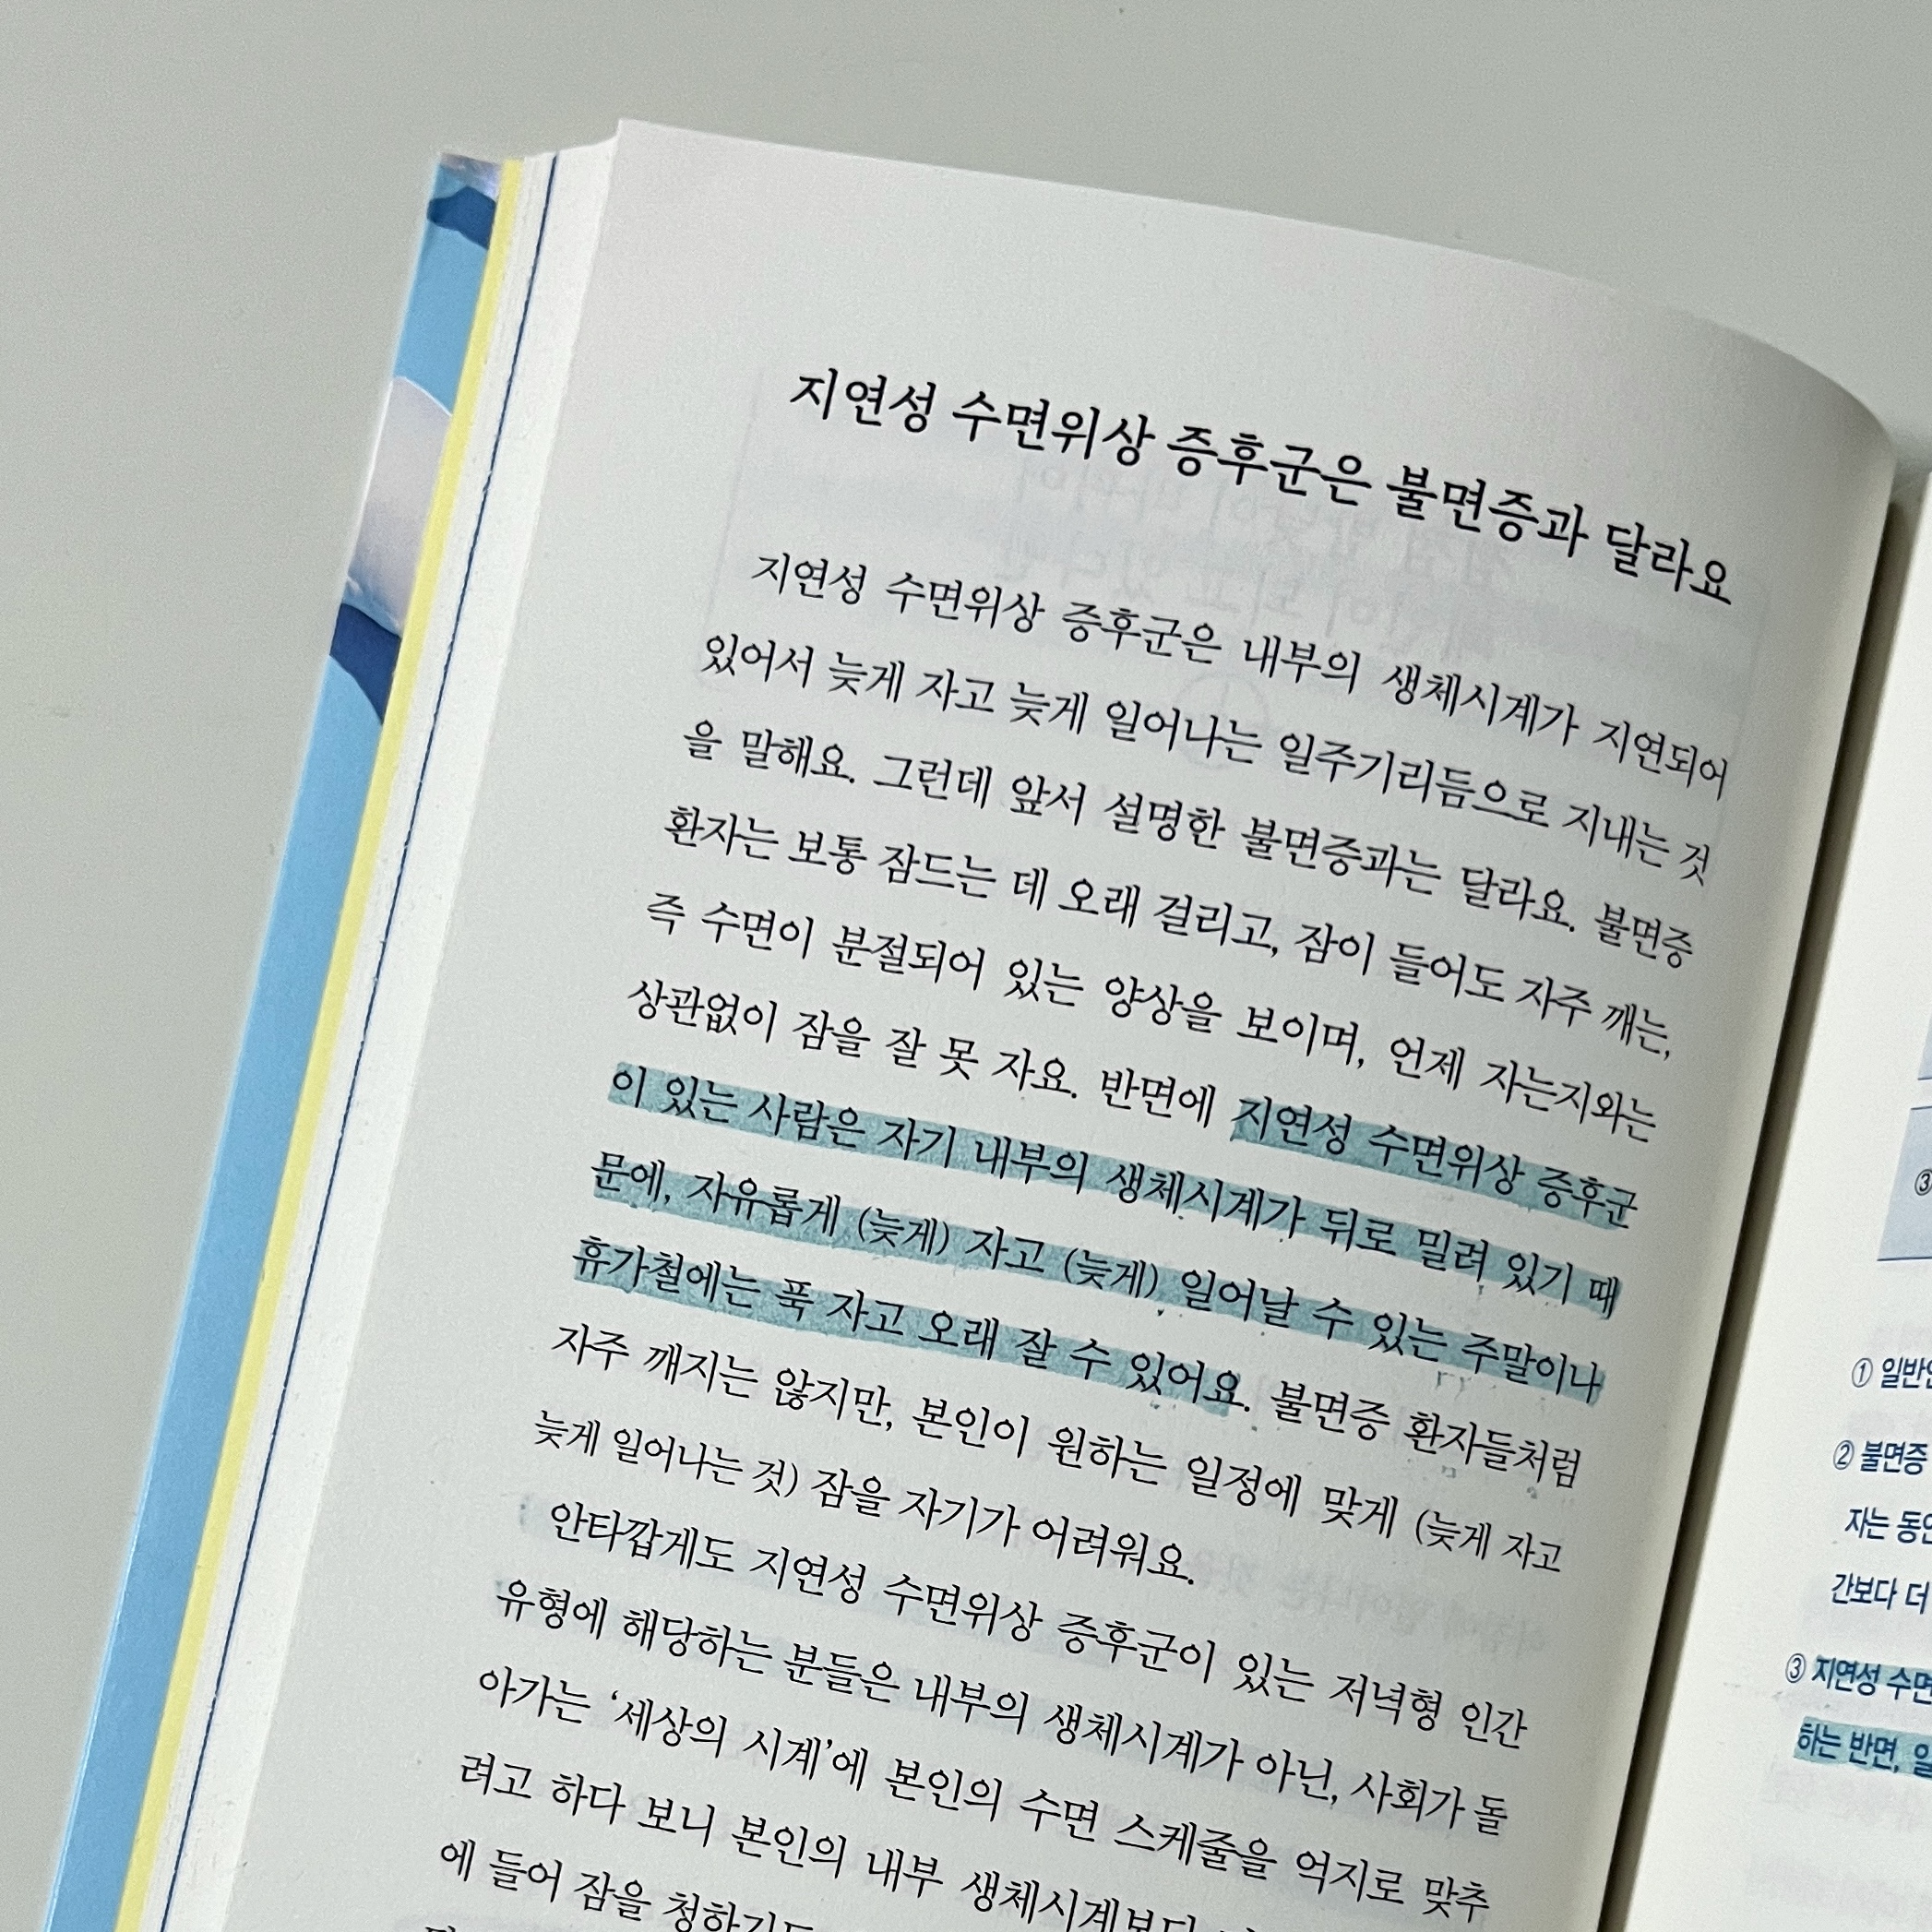 지연성 수면위상 증후군은 불면증과 달라요
지연성 수면위상 증후군은 내부의 생체시계가 지연되어
있어서 늦게 자고 늦게 일어나는 일주기리듬으로 지내는 것
을 말해요. 그런데 앞서 설명한 불면증과는 달라요. 불면증
환자는 보통 잠드는 데 오래 걸리고, 잠이 들어도 자주 깨는,
즉 수면이 분절되어 있는 양상을 보이며, 언제 자는지와는
상관없이 잠을 잘 못 자요. 반면에 지연성 수면위상 증후군
이 있는 사람은 자기 내부의 생체시계가 뒤로 밀려 있기 때
문에, 자유롭게 (늦게) 자고 (늦게) 일어날 수 있는 주말이나
휴가철에는 푹 자고 오래 잘 수 있어요. 불면증 환자들처럼
자주 깨지는 않지만, 본인이 원하는 일정에 맞게 (늦게 자고
늦게 일어나는 것) 잠을 자기가 어려워요.
안타깝게도 지연성 수면위상 증후군이 있는 저녁형 인간
유형에 해당하는 분들은 내부의 생체시계가 아닌, 사회가 돌
아가는 ‘세상의 시계’에 본인의 수면 스케줄을 억지로 맞추
려고 하다 보니 본인의 내부 생체시계보다
에 들어 잠을 청하기도
③
① 일반인
② 불면증
자는 동안
간보다 더
③ 지연성 수면
하는 반면, 일